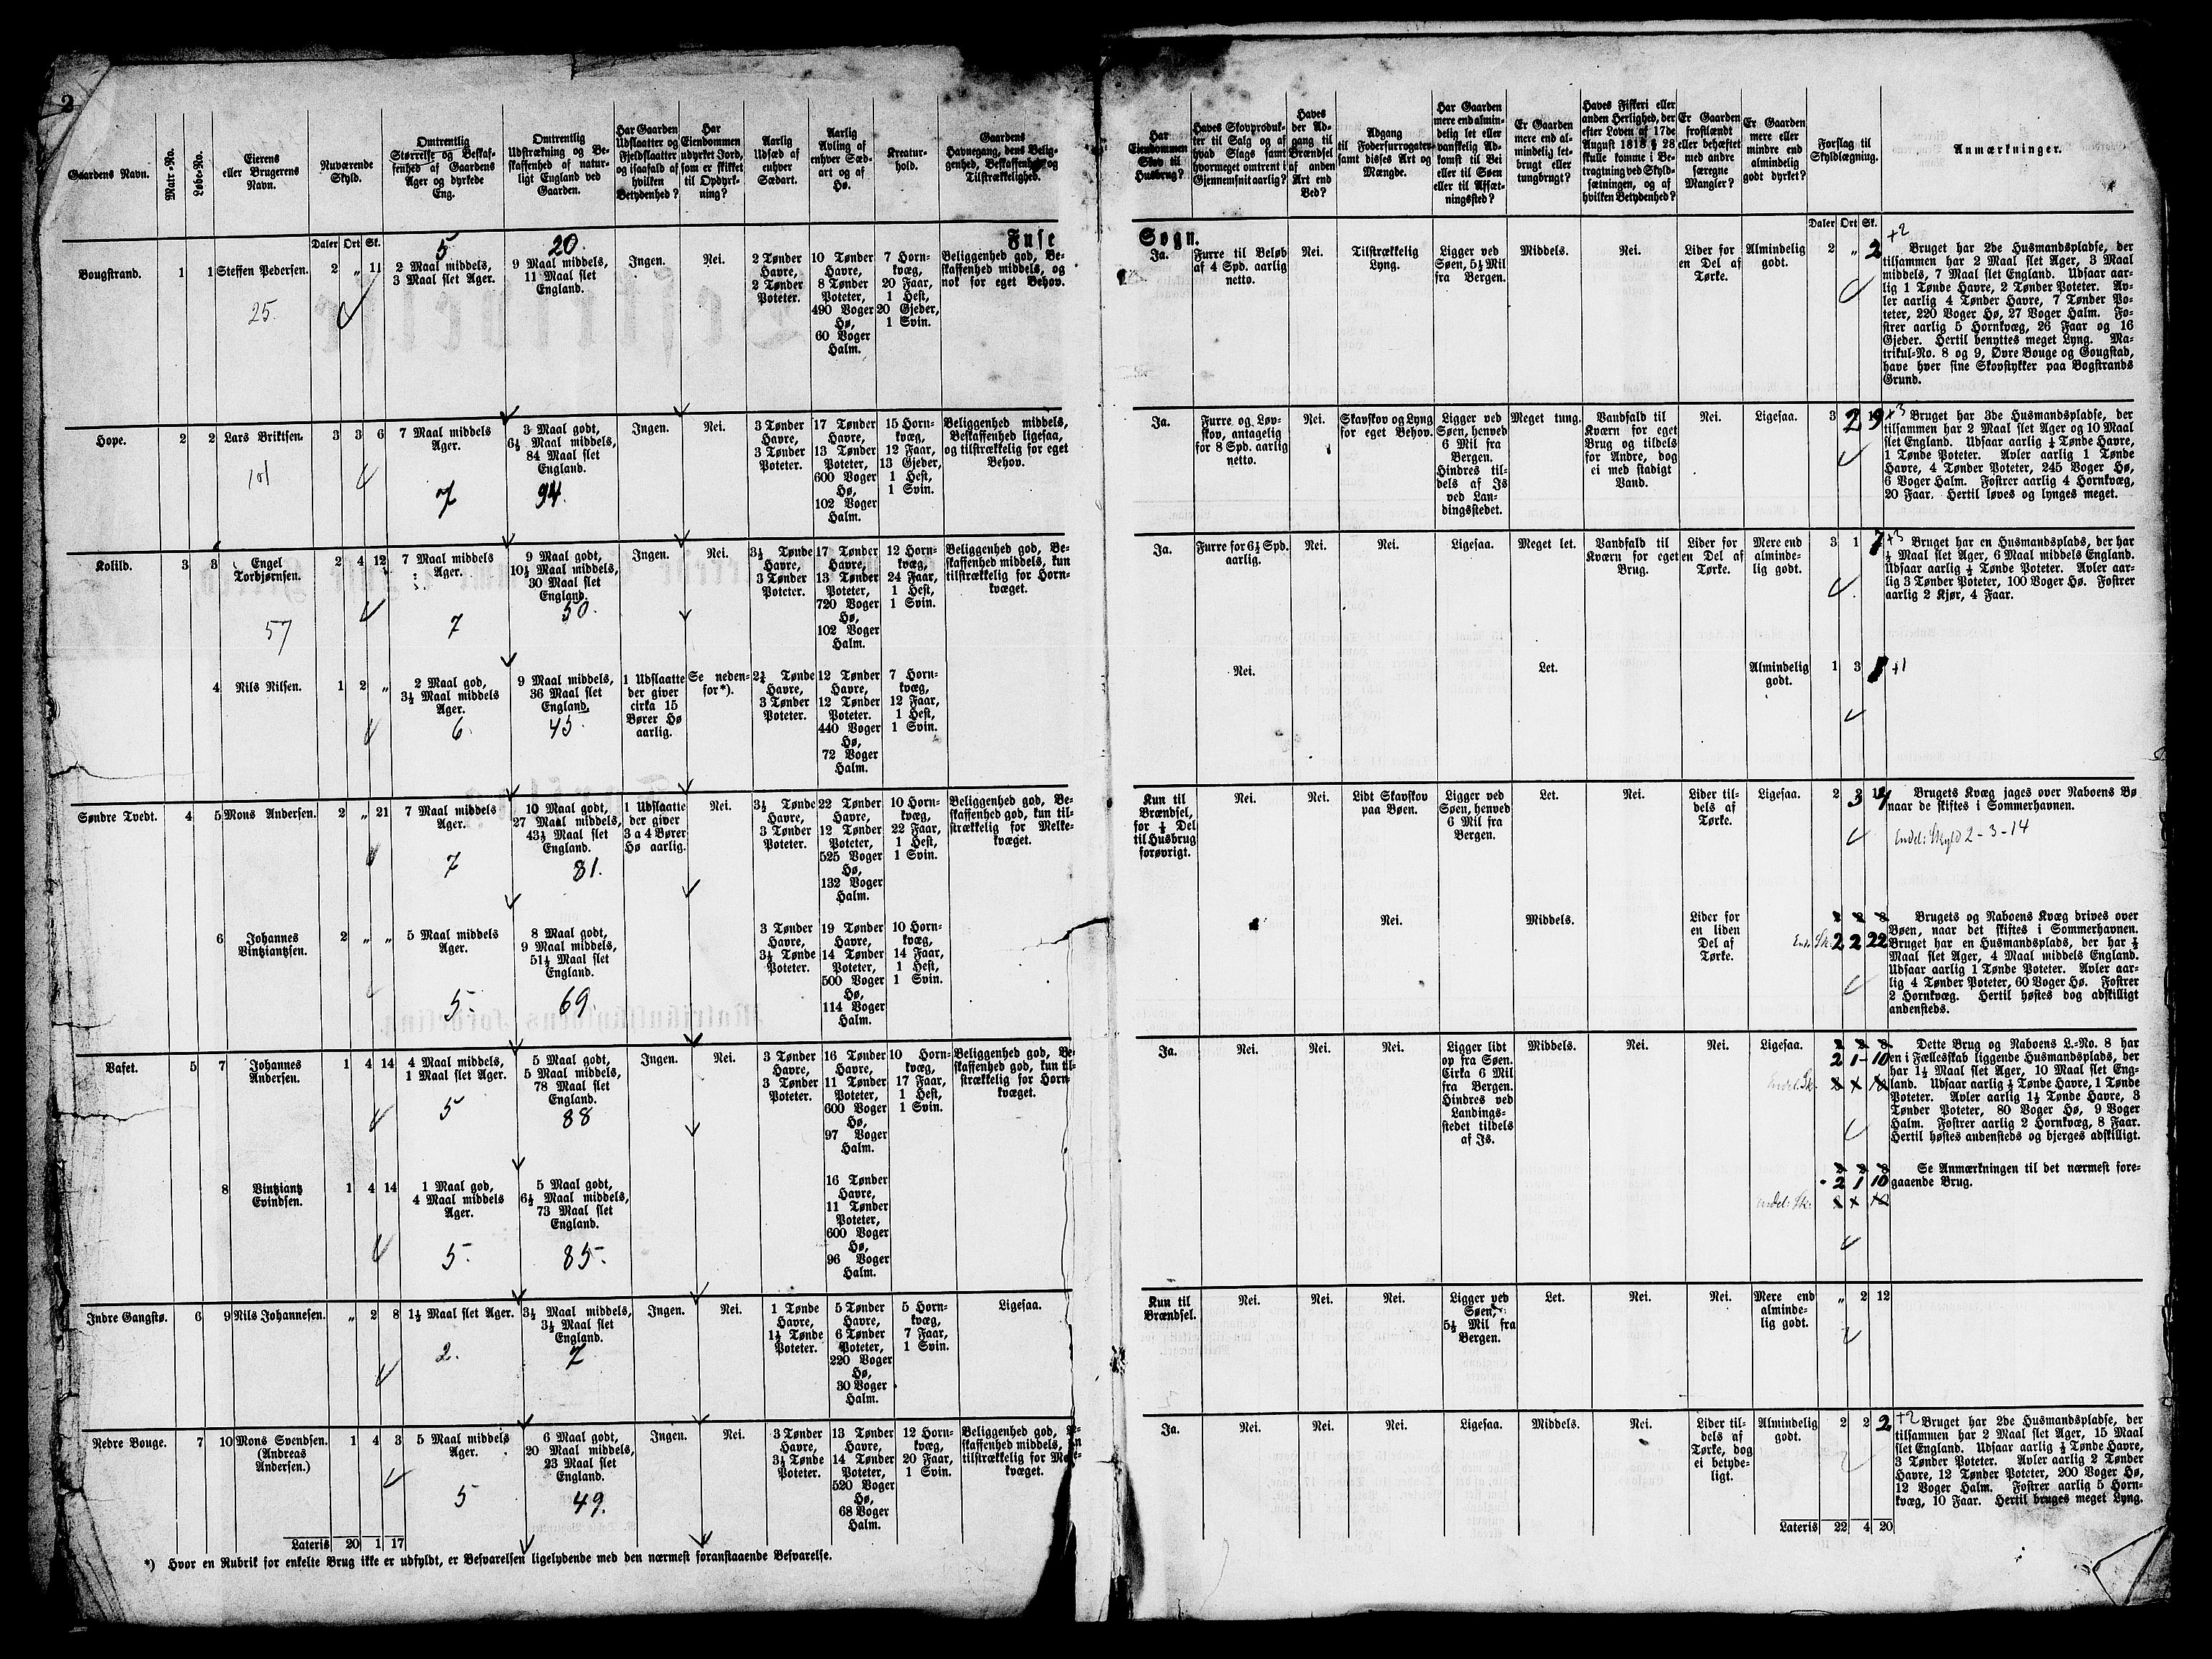 2
Gaardens Navn.
Matr.-No.
Løbe-No.
Eierens
eller Brugerens
Navn.
Nuværende
Skyld.
Omtrentlig
Størrelse og Beskaf-
fenhed af Gaardens
Ager og dyrkede
Eng.
Omtrentlig
Udstrækning og Be-
skaffenhed af natur-
ligt England ved
Gaarden.
Har Gaarden
Udslaatter og
Fjeldslaatter
og isaafald af
hvilken
Betydenhed?
Har
Eiendommen
udyrket Jord,
som er skikket
til Opdyrk-
ning?
Aarlig
Udsæd af
enhver
Sædart.
Aarlig
Avling af
enhver Sæd-
art og af
Hø.
Kreatur-
hold.
Gaardens
Havnegang, dens Belig-
genhed, Beskaffenhed og
Tilstrækkelighed.
Har
Eiendommen
Skov til
Husbrug?
Haves Skovproduk-
ter til Salg og af
hvad Slags samt
hvormeget omtrent i
Gjennemsnit aarlig?
Haves
der Ad-
gang til
Brændsel
af anden
Art end
Ved?
Adgang
til Fodersurrogater
samt disses Art og
Mængde.
Har Gaarden
mere end almin-
delig let eller
vanskelig Ad-
komst til Vei
eller til Søen
eller til Afsæt-
ningssted?
Er Gaarden
mere end al-
mindelig let-
brugt eller
tungbrugt?
Haves Fiskeri eller
anden Herlighed, der
efter Loven af 17de
August 1818 § 28
skulle komme i Be-
tragtning ved Skyld-
sætningen, og af
hvilken Betydenhed?
Er Gaarden
frostlændt
eller behæftet
med andre
særegne
Mangler?
Er Gaarden
mere eller
mindre end
almindelig
godt dyrket?
Forslag til
Skyldlægning.
Anmærkninger.
Fuse Sogn.
Daler Ort Sk.
Daler Ort Sk.
Bougstrand.
1
1
Steffen Pedersen.
25.
2 „ 11
5
2 Maal middels,
3 Maal slet Ager.
20.
9 Maal middels,
11 Maal slet
England.
Ingen.
Nei.
2 Tønder
Havre,
2 Tønder
Poteter.
10 Tønder
Havre,
8 Tønder
Poteter,
490 Voger
Hø,
60 Voger
Halm.
7 Horn-
kvæg,
20 Faar,
1 Hest,
20 Gjeder,
1 Svin.
Beliggenhed god, Be-
skaffenhed middels, og
nok for eget Behov.
Ja.
Furre til Beløb
af 4 Spd. aarlig
netto.
Nei.
Tilstrækkelig
Lyng.
Ligger ved
Søen, 5½ Mil
fra Bergen.
Middels.
Nei.
Lider for
en Del af
Tørke.
Almindelig
godt.
2 „ 2
+2
Bruget har 2de Husmandspladse, der
tilsammen har 2 Maal slet Ager, 3 Maal
middels, 7 Maal slet England. Udsaar aar-
lig 1 Tønde Havre, 2 Tønder Poteter. Av-
ler aarlig 4 Tønder Havre, 7 Tønder Po-
teter, 220 Voger Hø, 27 Voger Halm. Fo-
strer aarlig 5 Hornkvæg, 26 Faar og 16
Gjeder. Hertil benyttes meget Lyng. Ma-
trikul-No. 8 og 9, Øvre Bouge og Gougstad,
have hver sine Skovstykker paa Bogstrands
Grund.
Hope.
2
2
Lars Briktsen.
101
3 3 6
7 Maal middels
Ager.
7
3 Maal godt,
6½ Maal middels,
84 Maal slet
England.
94.
Ingen.
Nei.
3 Tønder
Havre,
3 Tønder
Poteter.
17 Tønder
Havre,
13 Tønder
Poteter,
600 Voger
Hø,
102 Voger
Halm.
15 Horn-
kvæg,
12 Faar,
13 Gjeder,
1 Hest,
1 Svin.
Beliggenhed middels,
Beskaffenhed ligesaa,
og tilstrækkelig for eget
Behov.
Ja.
Furre og Løv-
skov, antagelig
for 8 Spd. aarlig
netto.
Nei.
Skavskov og Lyng
for eget Behov.
Ligger ved
Søen, henved
6 Mil fra
Bergen.
Hindres til-
dels af Is
ved Lan-
dingsstedet.
Meget tung.
Vandfald til
Kværn for eget
Brug og tildels
for Andre, dog
ei med stadigt
Vand.
Nei.
Ligesaa.
3 2 9
+3
Bruget har 3de Husmandspladse, der
tilsammen har 2 Maal slet Ager og 10 Maal
slet England. Udsaar aarlig ½ Tønde Havre,
1 Tønde Poteter. Avler aarlig 1 Tønde
Havre, 4 Tønder Poteter, 245 Voger Hø,
6 Voger Halm. Fostrer aarlig 4 Hornkvæg,
20 Faar. Hertil løves og lynges meget.
Kolild.
3
3
Engel
Torbjørnsen.
57
2 4 12
7 Maal middels
Ager.
7
9 Maal godt,
10½ Maal middels,
30 Maal slet
England.
50.
Ingen.
Nei.
3½ Tønde
Havre,
3 Tønder
Poteter.
17 Tønder
Havre,
13 Tønder
Poteter,
720 Voger
Hø,
102 Voger
Halm.
12 Horn-
kvæg,
24 Faar,
1 Hest,
1 Svin.
Beliggenhed god, Be-
skaffenhed middels, kun
tilstrækkelig for Horn-
kvæget.
Ja.
Furre for 6½ Spd.
aarlig.
Nei.
Nei.
Ligesaa.
Meget let.
Vandfald til
Kværn for eget
Brug.
Lider for
en Del af
Tørke.
Mere end
alminde-
lig godt.
3 1 7
+3
Bruget har en Husmandsplads, der har
½ Maal slet Ager, 6 Maal middels England.
Udsaar aarlig ½ Tønde Poteter. Avler aar-
lig 3 Tønder Poteter, 100 Voger Hø. Fostrer
aarlig 2 Kjør, 4 Faar.
4
Nils Nilsen.
1 2 „
2 Maal god,
3½ Maal middels
Ager.
6.
9 Maal middels,
36 Maal slet
England.
45.
1 Udslaatte
der giver
cirka 15
Bører Hø
aarlig.
Se neden-
for*).
2¾ Tønde
Havre,
3 Tønder
Poteter.
12 Tønder
Havre,
12 Tønder
Poteter.
440 Voger
Hø,
72 Voger
Halm.
7 Horn-
kvæg,
12 Faar,
1 Hest,
1 Svin.
Nei.
Let.
Almindelig
godt.
1 3
+1
Søndre Tvedt.
4
5
Mons Andersen.
2 „ 21
7 Maal middels
Ager.
7
10 Maal godt,
27 Maal middels,
43½ Maal slet
England.
81.
1 Udslaatte
der giver
3 a 4 Bører
Hø aarlig.
Nei.
3½ Tønde
Havre,
3 Tønder
Poteter.
22 Tønder
Havre,
12 Tønder
Poteter,
525 Voger
Hø,
132 Voger
Halm.
10 Horn-
kvæg,
22 Faar,
1 Hest,
1 Svin.
Beliggenhed god, Be-
skaffenhed god, kun til-
strækkelig for Melke-
kvæget.
Kun til
Brændsel,
for ½ Del
til Husbrug
forøvrigt.
Nei.
Nei.
Lidt Skavskov
paa Bøen.
Ligger ved
Søen, henved
6 Mil fra
Bergen.
Let.
Nei.
Lider til-
dels af
Tørke.
Ligesaa.
2 3
Brugets Kvæg jages over Naboens Bø
naar de skiftes i Sommerhavnen.
Endel: Skyld 2-3-14
6
Johannes
Vintziantsen.
2 „ „
5 Maal middels
Ager.
5.
8 Maal godt,
9 Maal middels,
51½ Maal slet
England.
69.
3 Tønder
Havre,
3½ Tønde
Poteter.
19 Tønder
Havre,
14 Tønder
Poteter,
500 Voger
Hø,
114 Voger
Halm.
10 Horn-
kvæg,
14 Faar,
1 Hest,
1 Svin.
Nei.
Middels.
Lider for
en liden
Del af
Tørke.
2 2 8
End. Sk. 2 2 22
Brugets og Naboens Kvæg drives over
Bøen, naar det skiftes i Sommerhavnen.
Bruget har en Husmandsplads, der har ½
Maal slet Ager, 4 Maal middels England.
Udsaar aarlig 1 Tønde Poteter. Avler aar-
lig 4 Tønder Poteter, 60 Voger Hø. Fostrer
2 Hornkvæg. Hertil høstes dog adskilligt
andensteds.
Vaset.
5
7
Johannes
Andersen.
1 4 14
4 Maal middels,
1 Maal slet Ager.
5
5 Maal godt,
5 Maal middels,
78 Maal slet
England.
88
Ingen.
Nei.
3 Tønder
Havre,
3 Tønder
Poteter.
16 Tønder
Havre,
11 Tønder
Poteter,
600 Voger
Hø,
97 Voger
Halm.
10 Horn-
kvæg,
17 Faar,
1 Hest,
1 Svin.
Beliggenhed god, Be-
skaffenhed god, kun til-
strækkelig for Horn-
kvæget.
Ja.
Nei.
Nei.
Nei.
Ligger lidt
op fra Søen.
Cirka 6 Mil
fra Bergen.
Hindres ved
Landings-
stedet tildels
af Is.
Middels.
Nei.
Nei.
Ligesaa.
2 2 8
2 1 - 10
Endel: Sk.
Dette Brug og Naboens L.-No. 8 har
en i Fællesskab liggende Husmandsplads, der
har 1½ Maal slet Ager, 10 Maal slet Eng-
land. Udsaar aarlig ½ Tønde Havre, 1 Tønde
Poteter. Avler aarlig 1½ Tønde Havre, 3
Tønder Poteter, 80 Voger Hø, 9 Voger
Halm. Fostrer aarlig 2 Hornkvæg, 8 Faar.
Hertil høstes andensteds og bjerges adskilligt.
8
Vintziantz
Evindsen.
1 4 14
1 Maal god,
4 Maal middels
Ager.
5.
5 Maal godt,
6½ Maal middels,
73 Maal slet
England.
85.
16 Tønder
Havre,
11 Tønder
Poteter,
600 Voger
Hø,
96 Voger
Halm.
2 2 8
2 1 10
endel: Sk.
Se Anmærkningen til det nærmest fore-
gaaende Brug.
Indre Gangstø.
6
9
Nils Johannesen.
„ 2 8
1½ Maal slet Ager.
2.
3½ Maal middels,
3½ Maal slet
England.
7
Ingen.
Nei.
1 Tønde
Havre,
1½ Tønde
Poteter.
5 Tønder
Havre,
6 Tønder
Poteter,
220 Voger
Hø,
30 Voger
Halm.
5 Horn-
kvæg,
7 Faar,
1 Svin.
Ligesaa.
Kun til
Brændsel.
Nei.
Nei.
Nei.
Ligger ved
Søen,
5½ Mil fra
Bergen.
Let.
Nei.
Nei.
Mere end
alminde-
lig godt.
„ 2 12
Nedre Bouge.
7
10
Mons Svendsen.
(Andreas
Andersen.)
1 4 3
5 Maal middels
Ager.
5
6 Maal godt,
20 Maal middels,
23 Maal slet
England.
49.
Ingen.
Nei.
3 Tønder
Havre,
3½ Tønde
Poteter.
13 Tønder
Havre,
14 Tønder
Poteter,
520 Voger
Hø,
68 Voger
Halm.
12 Horn-
kvæg,
20 Faar,
1 Svin.
Beliggenhed god,
skaffenhed middels,
tilstrækkelig for
kvæget.
Ja.
Nei.
Nei.
Nei.
Ligesaa.
Middels.
Nei.
Lider til-
dels af
Tørke, dog
ei betyde-
ligt.
Almindelig
godt.
2 2 2
+2
Bruget har 2de Husmandspladse, der
tilsammen har 2 Maal slet Ager, 15 Maal
slet England. Udsaar aarlig ½ Tønde Havre,
3 Tønder Poteter. Avler aarlig 2 Tønder
Havre, 12 Tønder Poteter, 200 Voger Hø,
12 Voger Halm. Fostrer aarlig 5 Horn-
kvæg, 10 Faar. Hertil bruges meget Lyng.
Lateris 20 1 17
Lateris 22 4 20
*) Hvor en Rubrik for enkelte Brug ikke er udfyldt, er Besvarelsen ligelydende med den nærmest foranstaaende Besvarelse.